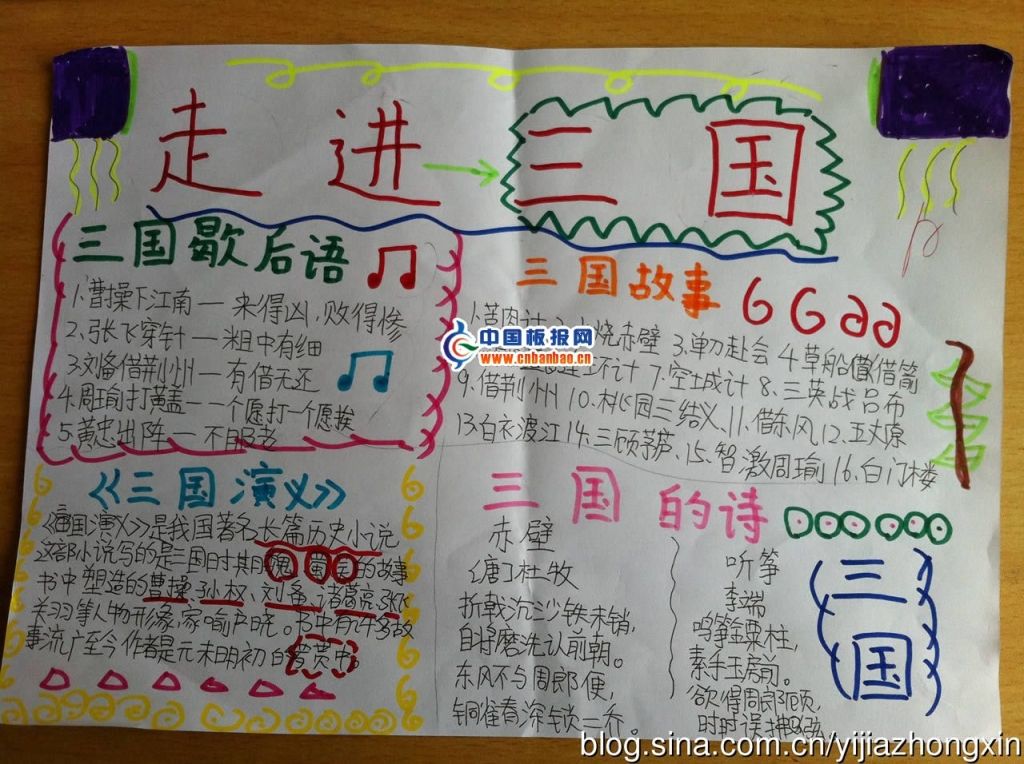 走 进 三 国
三国歇后语
1.曹操下江南—来得凶,败得惨
2.张飞穿针—粗中有细
3.刘备借荆州—有借无还
4.周瑜打黄盖—一个愿打一个愿挨
5.黄忠出阵—不服老
三国故事
1.苦肉计 2.火烧赤壁 3.单刀赴会 4.草船借箭
计 7.空城计 8.三英战吕布
9.借荆州 10.桃园三结义 11.借东风 12.五丈原
13白衣渡江 14.三顾茅庐 15.智激周瑜 16.白门楼
中国板报网
www.cnbanbao.cn
《三国演义》
国演义》是我国著名长篇历史小说
这部小说写的是三国时其 魏 蜀 的故事
书中塑造的曹操、孙权、刘备、诸葛亮、张
关羽等人物形象,家喻户晓。书中有许多故
事流广至今作者是元末明初的罗贯中。
三国的诗
赤壁
(唐)杜牧
折戟沉沙铁未销,
自将磨洗认前朝。
东风不与周郎便,
铜雀春深锁二乔。
听筝
李端
鸣筝金粟柱,
素手玉房前。
欲得周郎顾,
时时误拂弦。
三
国
blog.sina.com.cn/yijiazhongxin